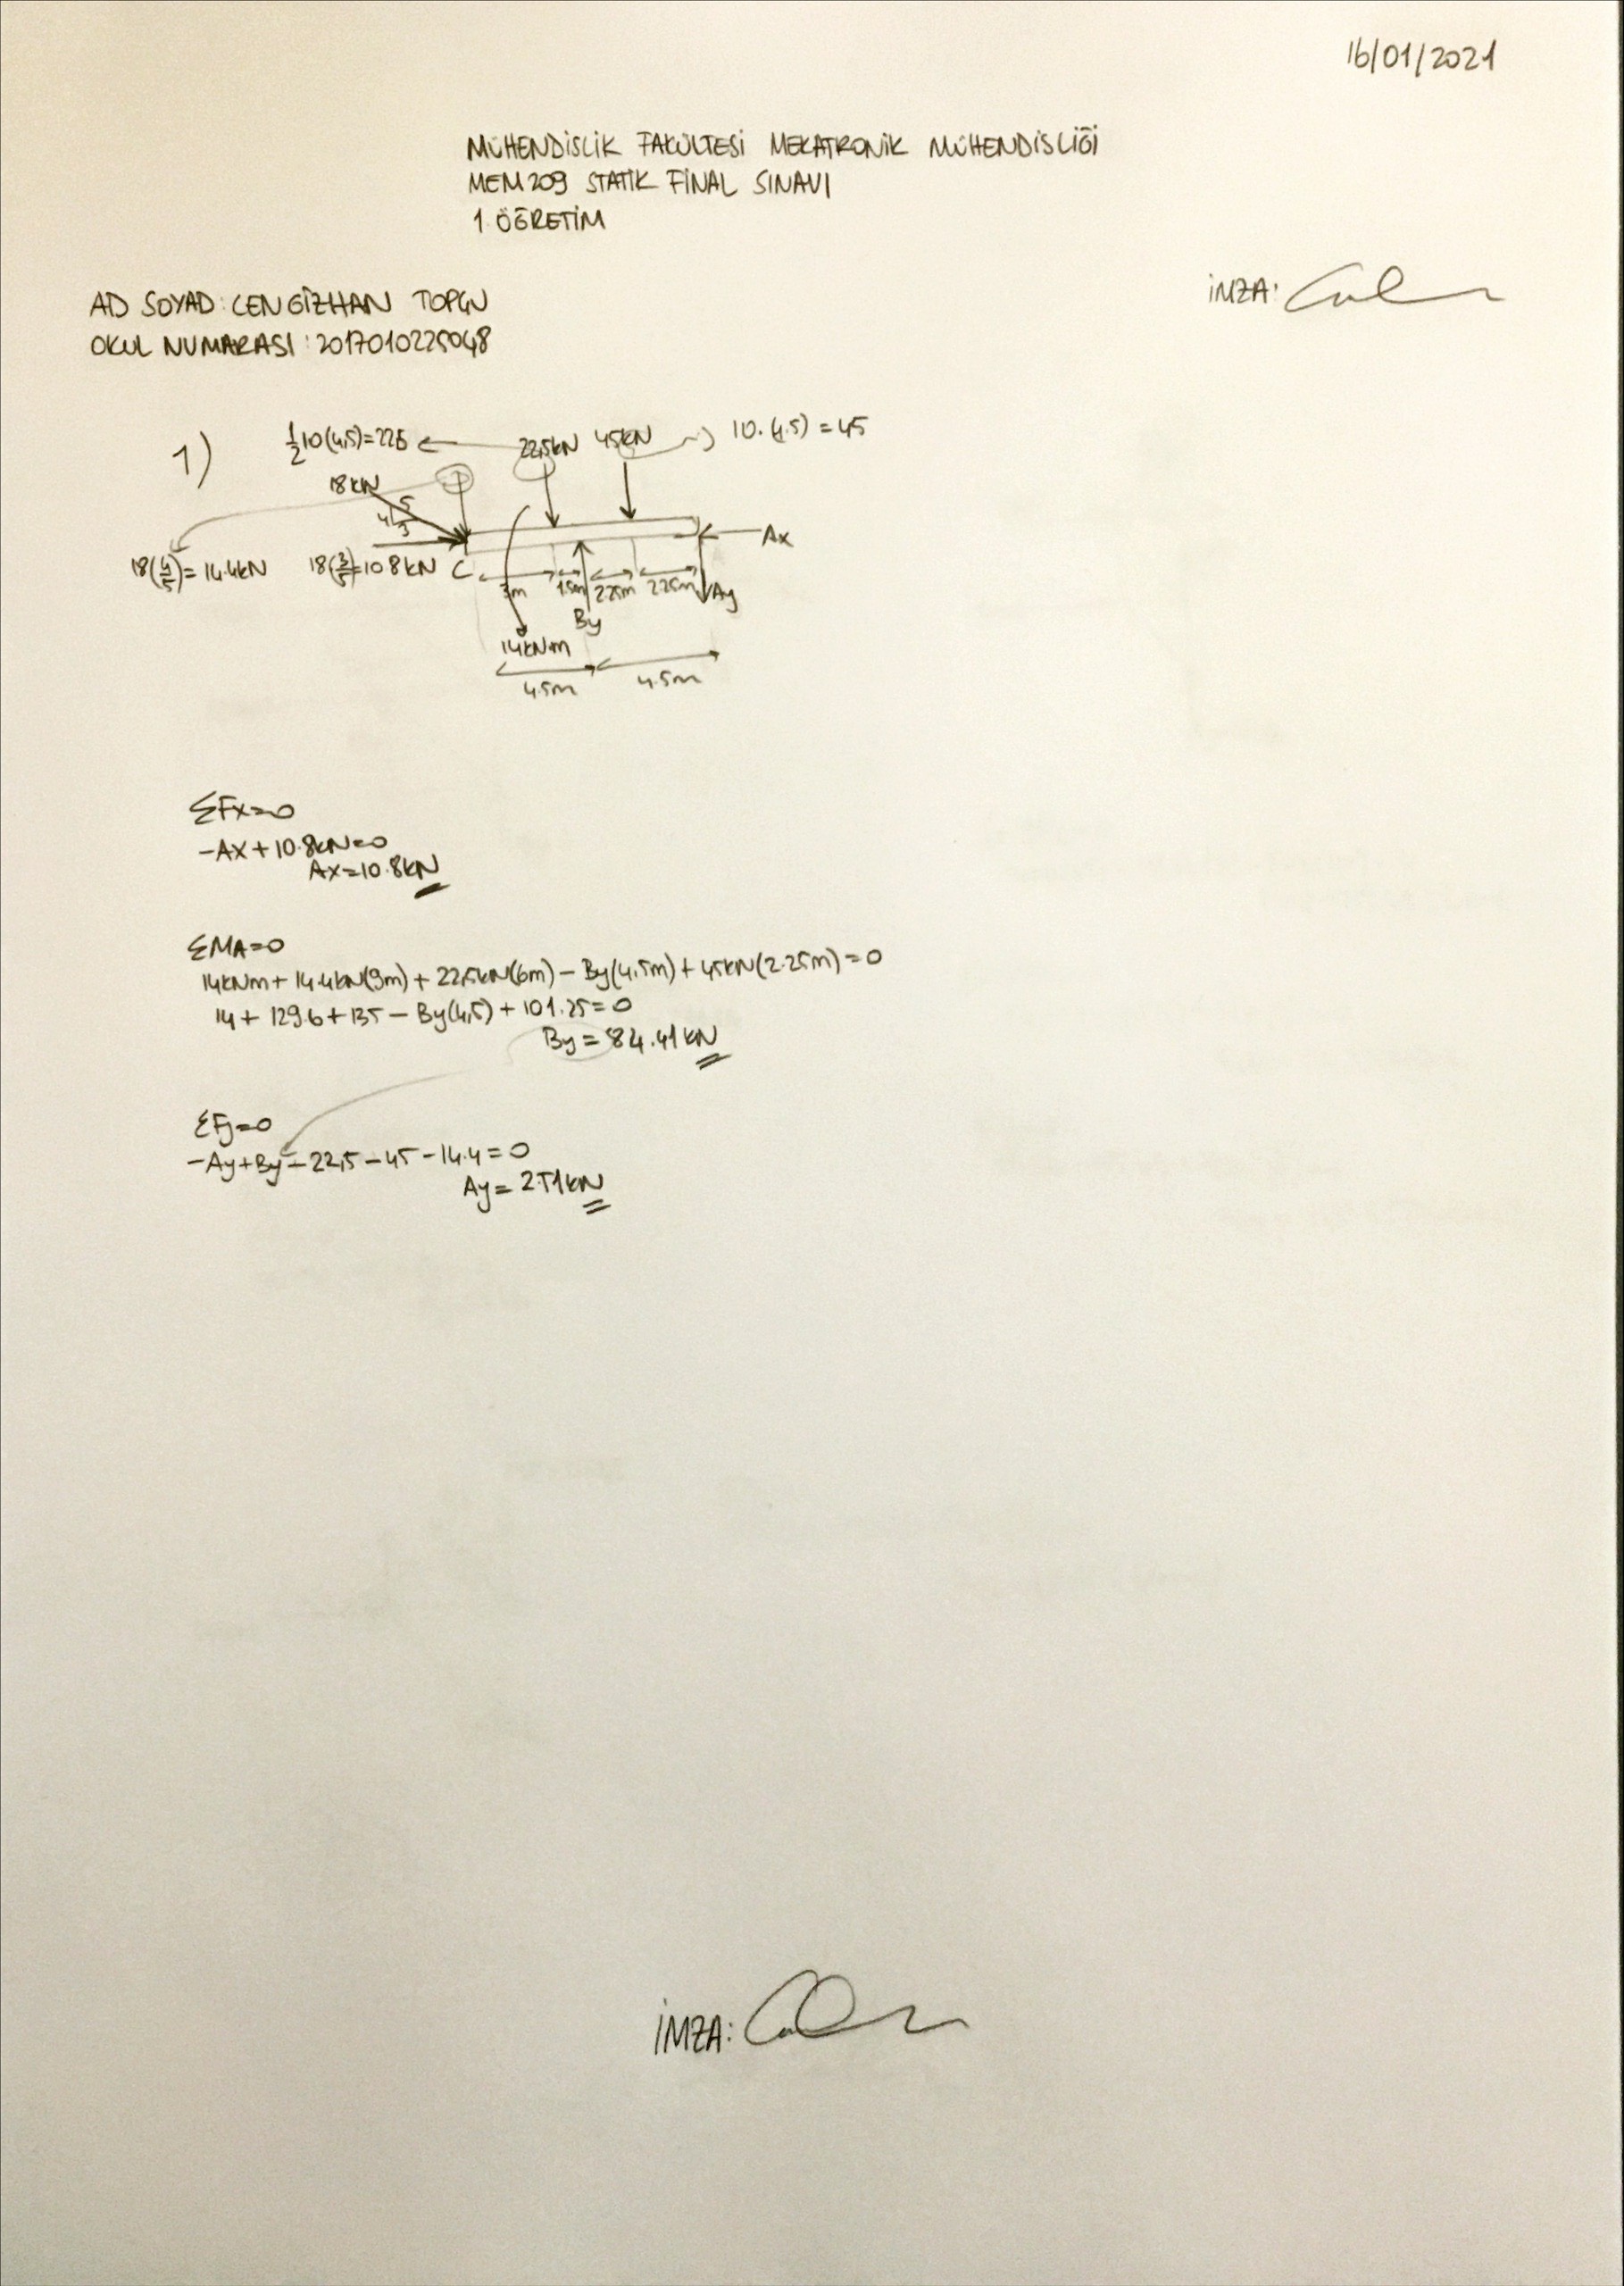 16/01/2021
MÜHENDİSLİK FAKÜLTESİ MEKATRONİK MÜHENDİSLİĞİ
MEM209 STATİK FİNAL SINAVI
1. ÖĞRETİM
İMZA:
AD SOYAD: CENGİZHAN TOPÇU
OKUL NUMARASI: 2017010225048
1)
1/2 10(4,5)=225 22,5kN 45kN 10.(4.5)=45
18kN
5
4
3
Ax
18(4/5)=14.4kN 18(3/5)=10.8kN C
3m 1.5m 2.25m 2.25m Ay
By
14kNm
4.5m 4.5m
ΣFx=0
-Ax+10.8kN=0
Ax=10.8kN
ΣMA=0
14kNm+14.4kN(9m)+22,5kN(6m)-By(4,5m)+45kN(2.25m)=0
14+129.6+135-By(4,5)+101.25=0
By=84.41kN
ΣFy=0
-Ay+By-22,5-45-14.4=0
Ay=2.51kN
İMZA: